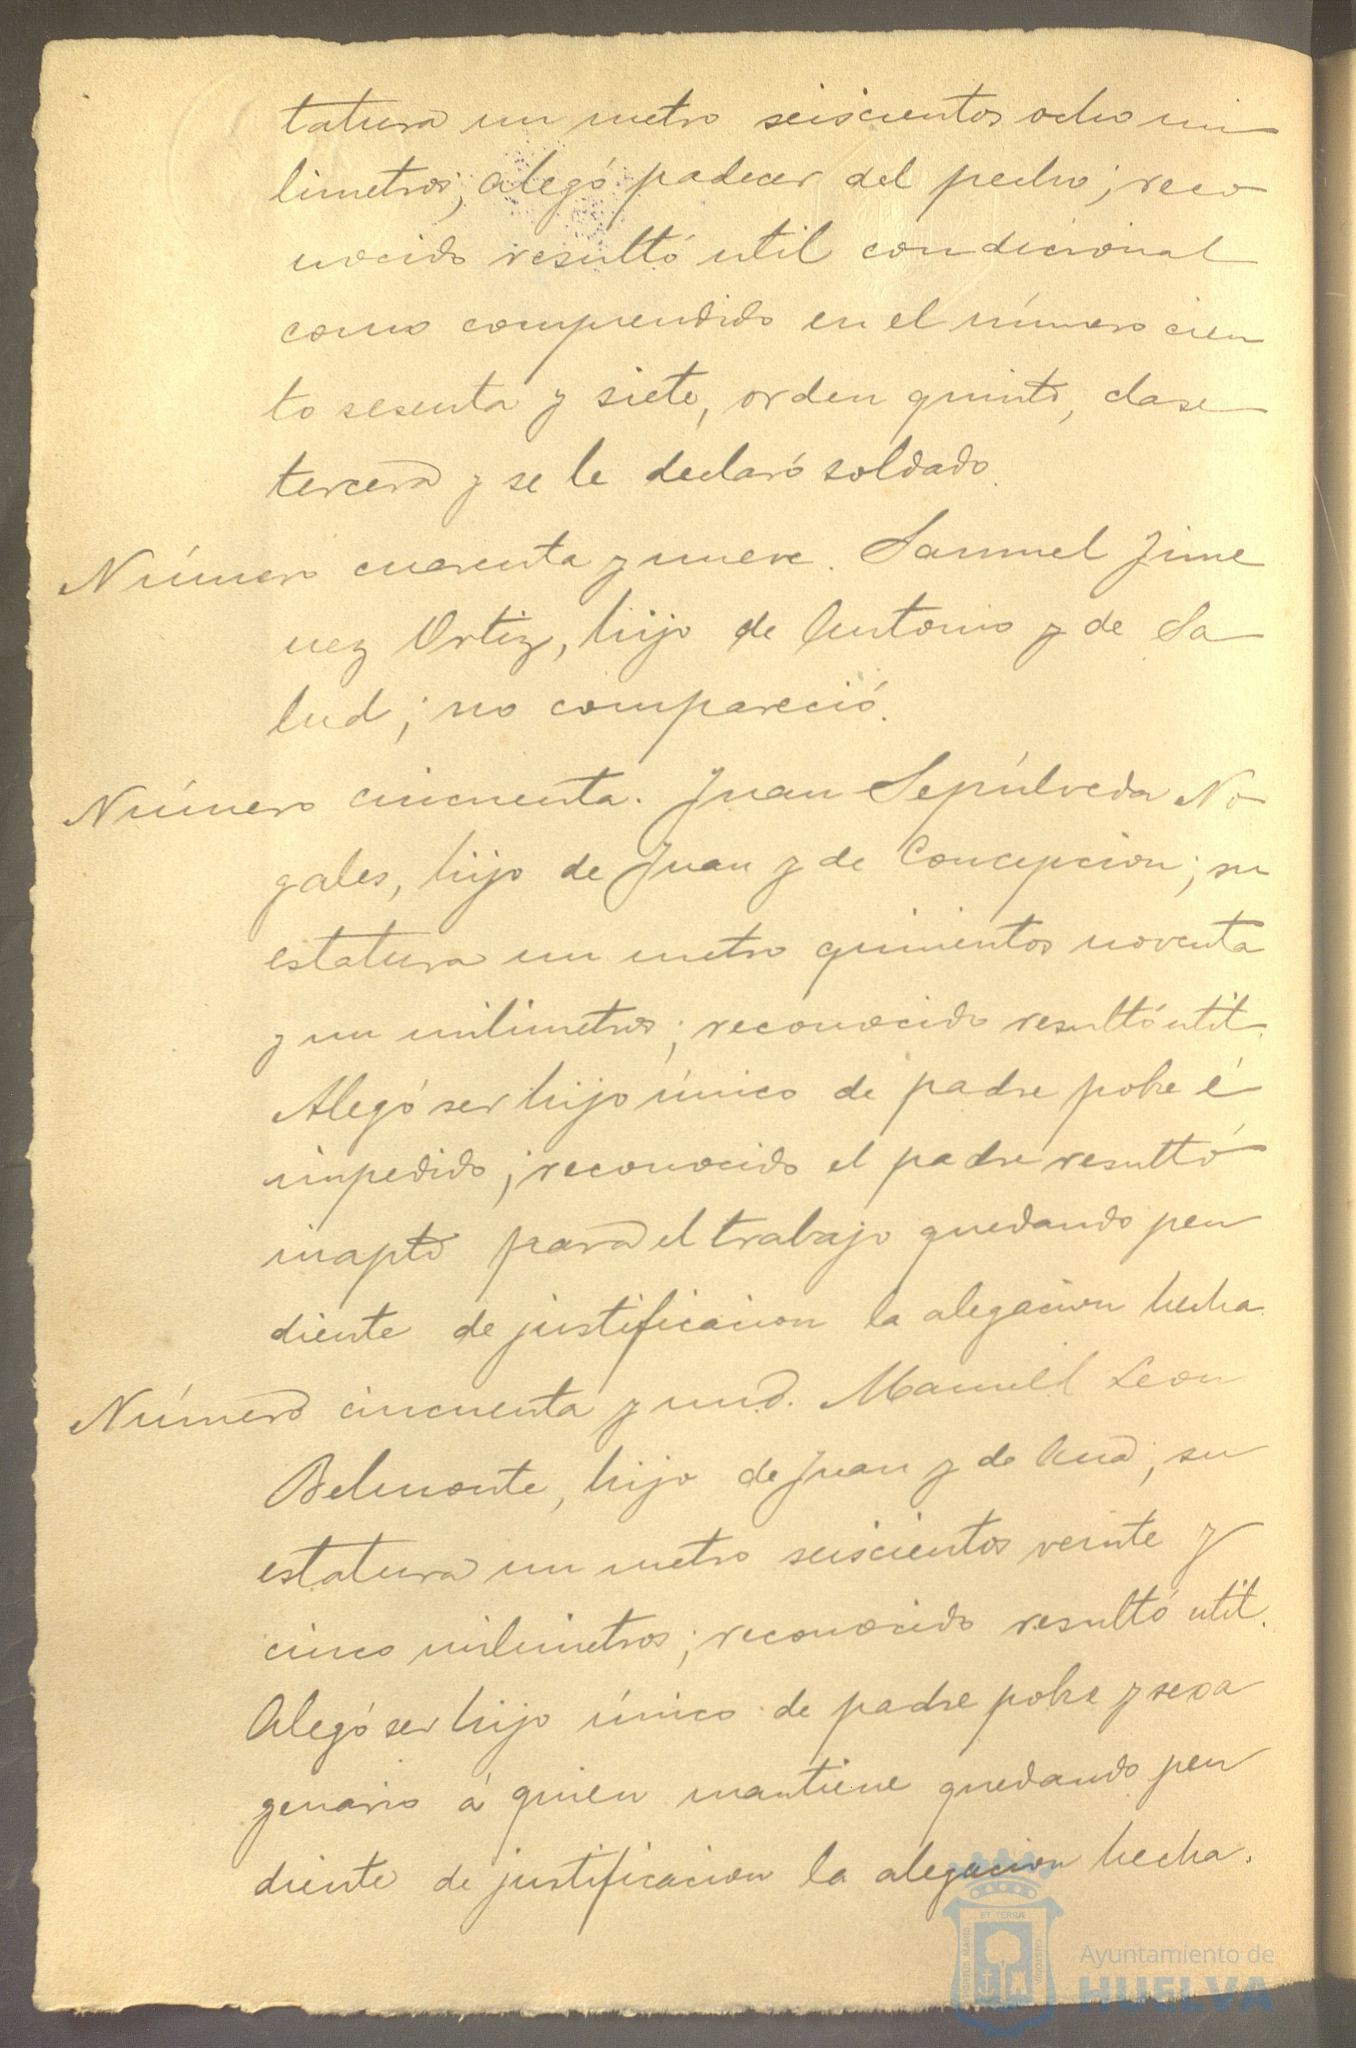 tatura un metro seiscientos ocho mi
límetros; alegó padecer del pecho; reco
nocido resultó util condicional
como comprendido en el número cien
to sesenta y siete, orden quinto, clase
tercera y se le declaró soldado.
Número cuarenta y nueve. Samuel Jime
nez Ortiz, hijo de Antonio y de Sa
lud; no compareció.
Número cincuenta. Juan Sepúlveda No
gales, hijo de Juan y de Concepcion; su
estatura un metro quinientos noventa
y un milimetros; reconocido resultó util.
Alegó ser hijo único de padre pobre é
impedido; reconocido el padre resultó
inapto para el trabajo quedando pen
diente de justificacion la alegacion hecha.
Número cincuenta y uno. Manuel Leon
Belmonte, hijo de Juan y de Ana; su
estatura un metro seiscientos veinte y
cinco milimetros; reconocido resultó util.
Alegó ser hijo único de padre pobre y sexa
genario á quien mantiene quedando pen
diente de justificacion la alegacion hecha.
Ayuntamiento de
HUELVA